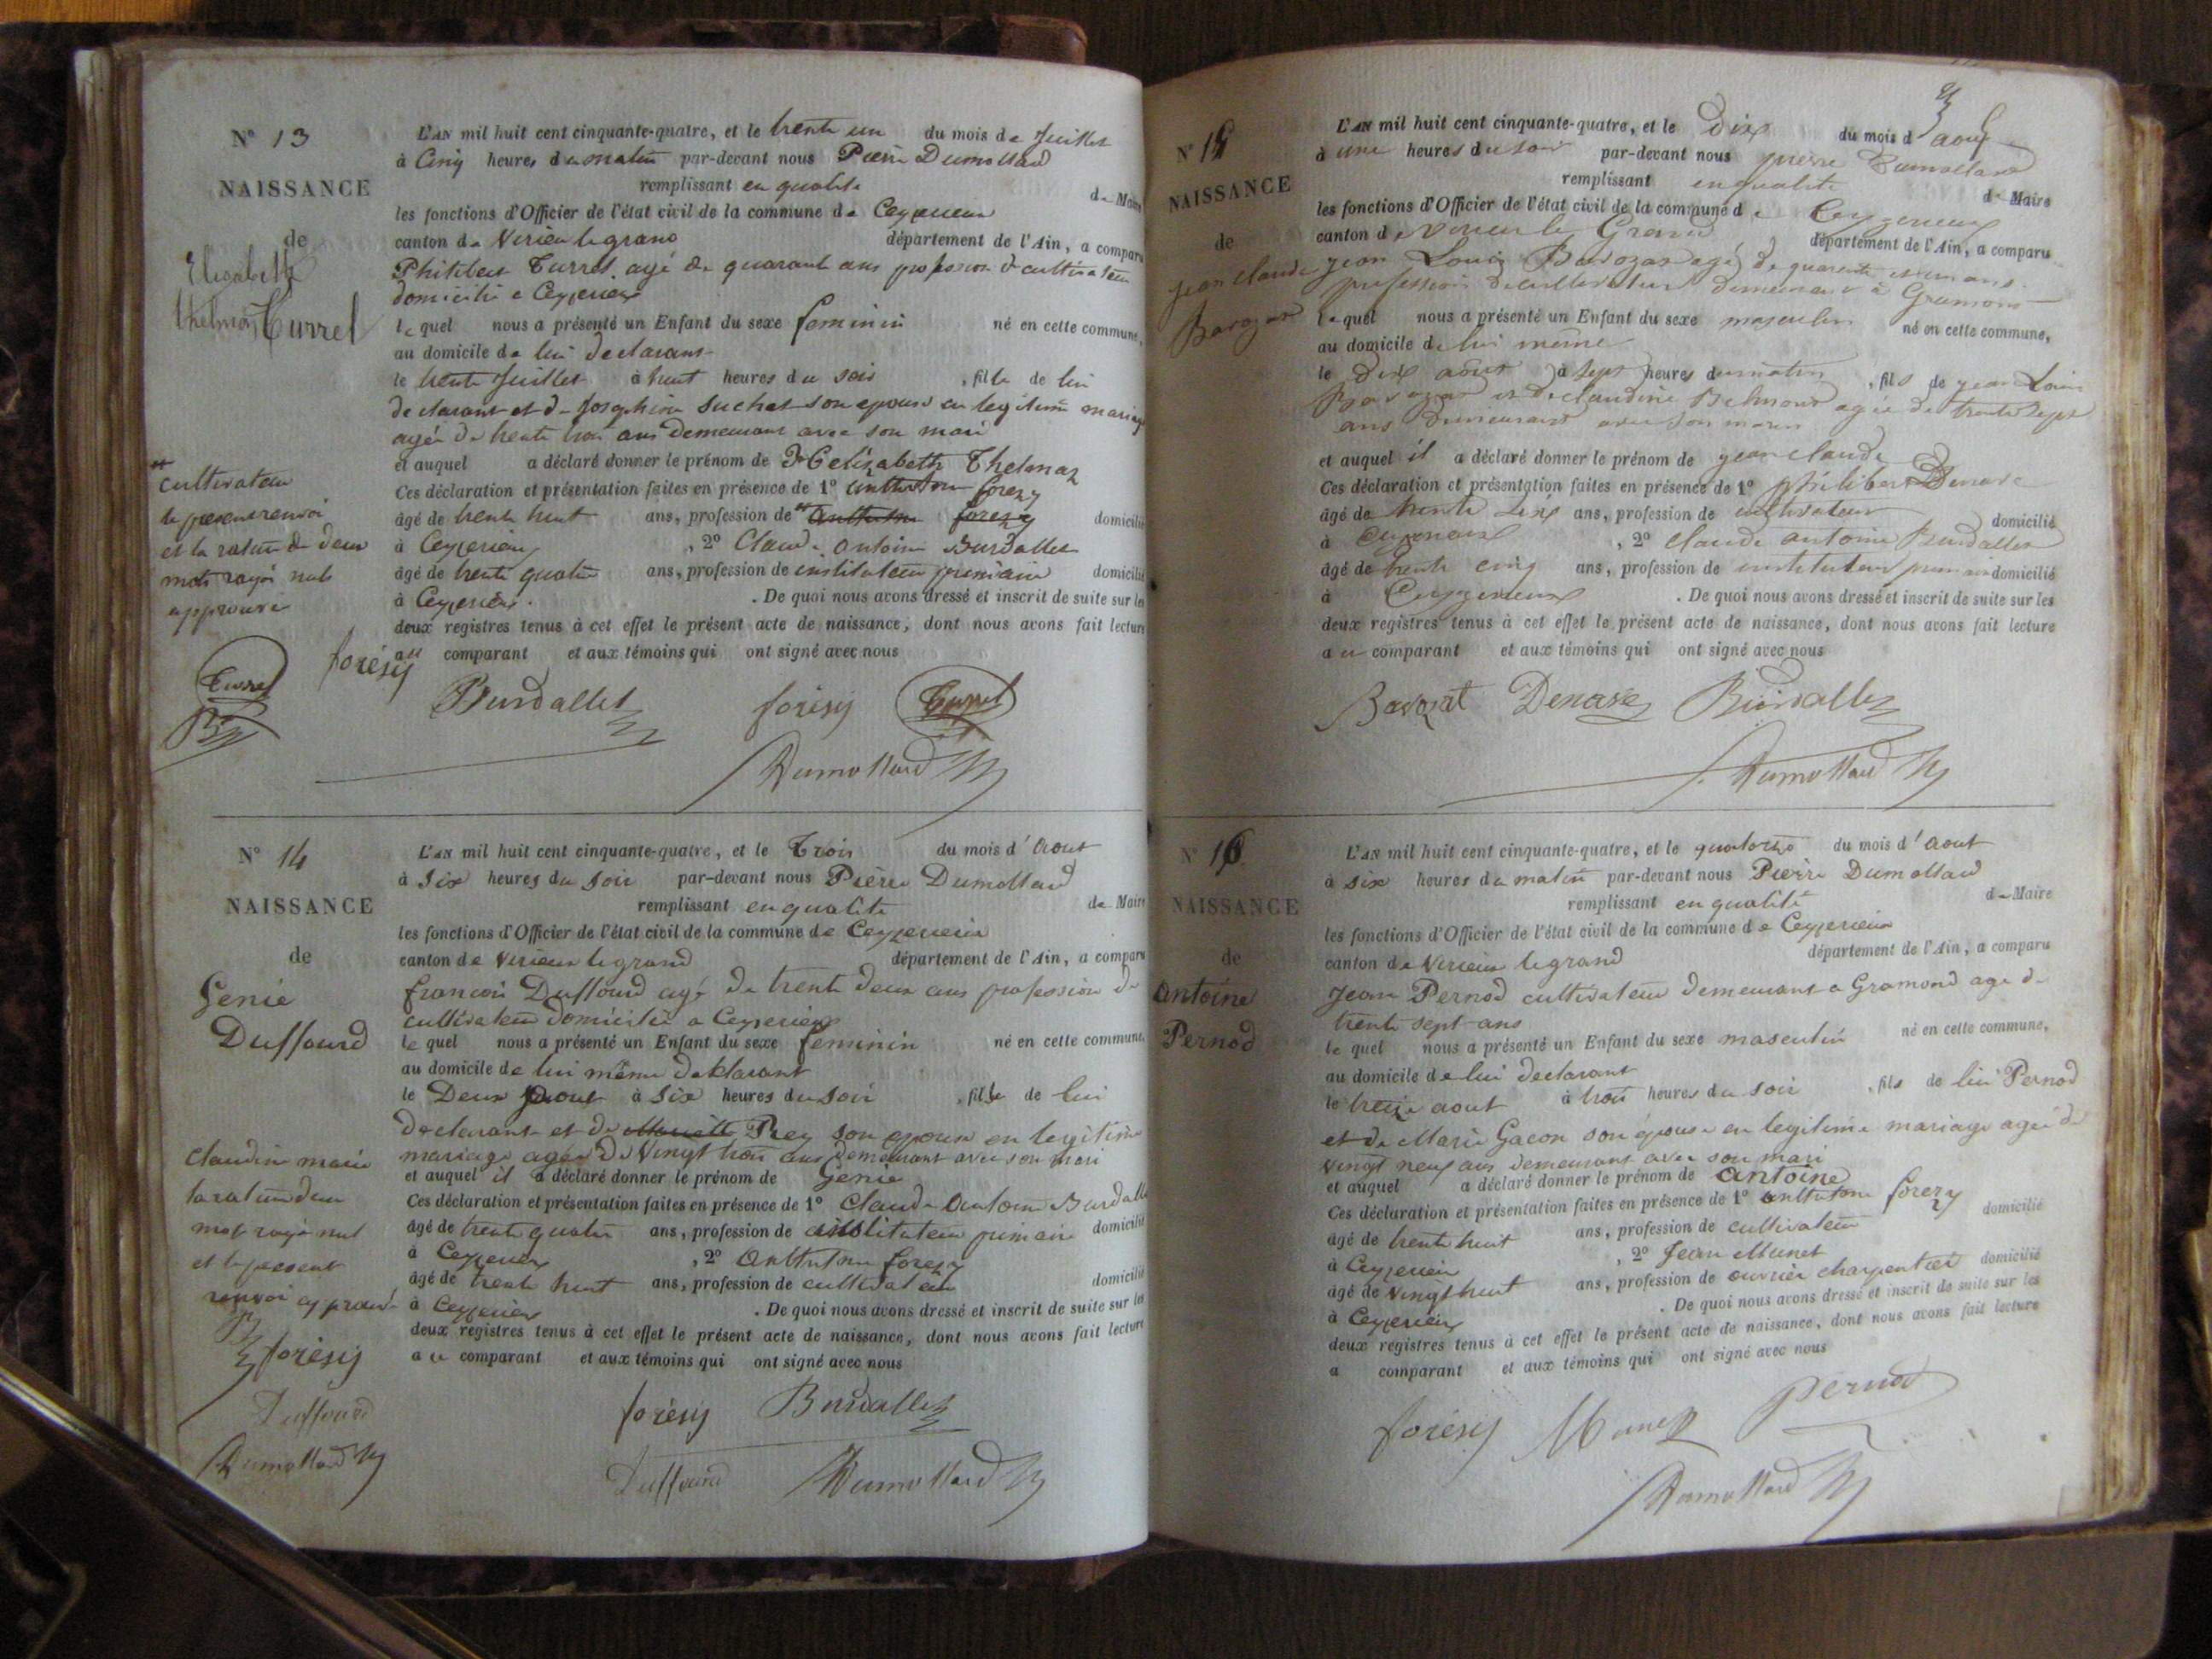 N° 13
NAISSANCE
de
Elisabeth
thelmaz Turrel
L'AN mil huit cent cinquante-quatre, et le trente un du mois de Juillet
à Cinq heures du matin par-devant nous Pierre Dumollard
remplissant en qualité de Maire
les fonctions d'Officier de l'état civil de la commune de Ceyzerieux
canton de Virieu le grand département de l'Ain, a comparu
Philibert Turrel agé de quarante ans profession de cultivateur
domicilié a Ceyzerieux
le quel nous a présenté un Enfant du sexe feminin né en cette commune,
au domicile de lui declarant
le trente Juillet à huit heures du soir , fille de lui
declarant et de Josephine Suchet son epouse en legitime mariage
agée de trente trois ans demeurant avec son mari
et auquel a déclaré donner le prénom de Helisabeth Thelmaz
Ces déclaration et présentation faites en présence de 1° anthelme forezy
âgé de trente huit ans, profession de anthelme forezy domicilié
à Ceyzerieux , 2° Claude antoine Burdallet
âgé de trente quatre ans, profession de instituteur primaire domicilié
à Ceyzerieux . De quoi nous avons dressé et inscrit de suite sur les
deux registres tenus à cet effet le présent acte de naissance, dont nous avons fait lecture
au comparant et aux témoins qui ont signé avec nous
cultivateur
le present renvoi
et la rature de deux
mots rayés nuls
approuvé
Turrel
forésy
Burdallet forésy Turrel
Dumollard
N° 14
NAISSANCE
de
Genie
Duffourd
L'AN mil huit cent cinquante-quatre, et le Trois du mois d'Aout
à Six heures du soir par-devant nous Pierre Dumollard
remplissant en qualité de Maire
les fonctions d'Officier de l'état civil de la commune de Ceyzerieux
canton de Virieux le grand département de l'Ain, a comparu
françois Duffourd agé de trente deux ans profession de
cultivateur domicilié a Ceyzerieux
le quel nous a présenté un Enfant du sexe feminin né en cette commune,
au domicile de lui même declarant
le Deux aout à Six heures du soir , fille de lui
declarant et de Mariette Prey son epouse en legitime
mariage agée de vingt trois ans demeurant avec son mari
et auquel il a déclaré donner le prénom de Genie
Ces déclaration et présentation faites en présence de 1° Claude Antoine Burdallet
âgé de trente quatre ans, profession de institituteur primaire domicilié
à Ceyzerieux , 2° Anthelme forezy
âgé de trente huit ans, profession de cultivateur domicilié
à Ceyzerieux . De quoi nous avons dressé et inscrit de suite sur les
deux registres tenus à cet effet le présent acte de naissance, dont nous avons fait lecture
au comparant et aux témoins qui ont signé avec nous
Claudine marie
la rature d'un
mot rayé nul
et le present
renvoi approuvé
forésy
Duffourd
Dumollard
forésy Burdallet
Duffourd Dumollard
N° 15
NAISSANCE
de
jean claude
Bavozat
L'AN mil huit cent cinquante-quatre, et le dix du mois d aout
à une heures du soir par-devant nous pierre Dumollard
remplissant en qualité de Maire
les fonctions d'Officier de l'état civil de la commune de Ceyzerieux
canton de virieu le Grand département de l'Ain, a comparu
jean Louis Bavozat agé de quarente et un ans
profession de cultivateur demeurant à Gramond
le quel nous a présenté un Enfant du sexe masculin né en cette commune,
au domicile de lui même
le dix aout à sept heures du matin , fils de jean Louis
Bavozat et de claudine Belmond agée de trente sept
ans demeurant avec son mari
et auquel il a déclaré donner le prénom de jean claude
Ces déclaration et présentation faites en présence de 1° philibert Denave
âgé de trente six ans, profession de cultivateur domicilié
à Ceyzerieux , 2° claude antoine Burdallet
âgé de trente cinq ans, profession de instituteur primaire domicilié
à Ceyzerieux . De quoi nous avons dressé et inscrit de suite sur les
deux registres tenus à cet effet le présent acte de naissance, dont nous avons fait lecture
au comparant et aux témoins qui ont signé avec nous
Bavozat Denave Burdallet
Dumollard
N° 16
NAISSANCE
de
antoine
Pernod
L'AN mil huit cent cinquante-quatre, et le quatorze du mois d'Aout
à six heures du matin par-devant nous Pierre Dumollard
remplissant en qualité de Maire
les fonctions d'Officier de l'état civil de la commune de Ceyzerieux
canton de Virieux le grand département de l'Ain, a comparu
Jean Pernod cultivateur demeurant a Gramond age de
trente sept ans
le quel nous a présenté un Enfant du sexe masculin né en cette commune,
au domicile de lui declarant
le treize aout à trois heures du soir , fils de lui Pernod
et de Marie Gacon son épouse en legitime mariage agée de
vingt neuf ans demeurant avec son mari
et auquel a déclaré donner le prénom de antoine
Ces déclaration et présentation faites en présence de 1° anthelme forezy
âgé de trente huit ans, profession de cultivateur domicilié
à Ceyzerieux , 2° Jean Munet
âgé de vingt huit ans, profession de ouvrier charpentier domicilié
à Ceyzerieux . De quoi nous avons dressé et inscrit de suite sur les
deux registres tenus à cet effet le présent acte de naissance, dont nous avons fait lecture
a comparant et aux témoins qui ont signé avec nous
forésy Munet Pernod
Dumollard